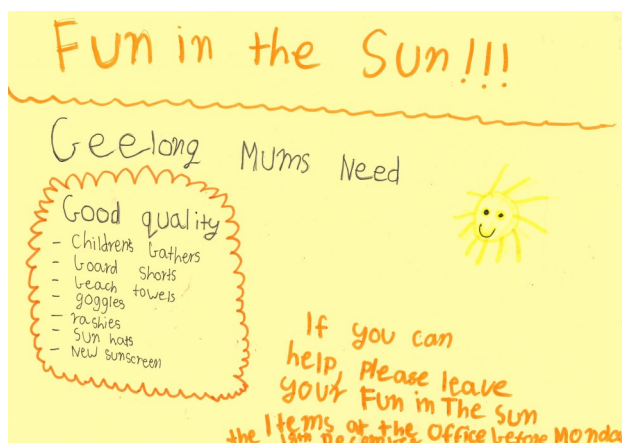 Fun in the Sun!!!
Geelong Mums Need
Good quality
- Children's bathers
- board shorts
- beach towels
- goggles
- rashies
- Sun hats
- New sunscreen
If you can
help, please leave
your Fun in The Sun
Items at the Office before Monday
the December